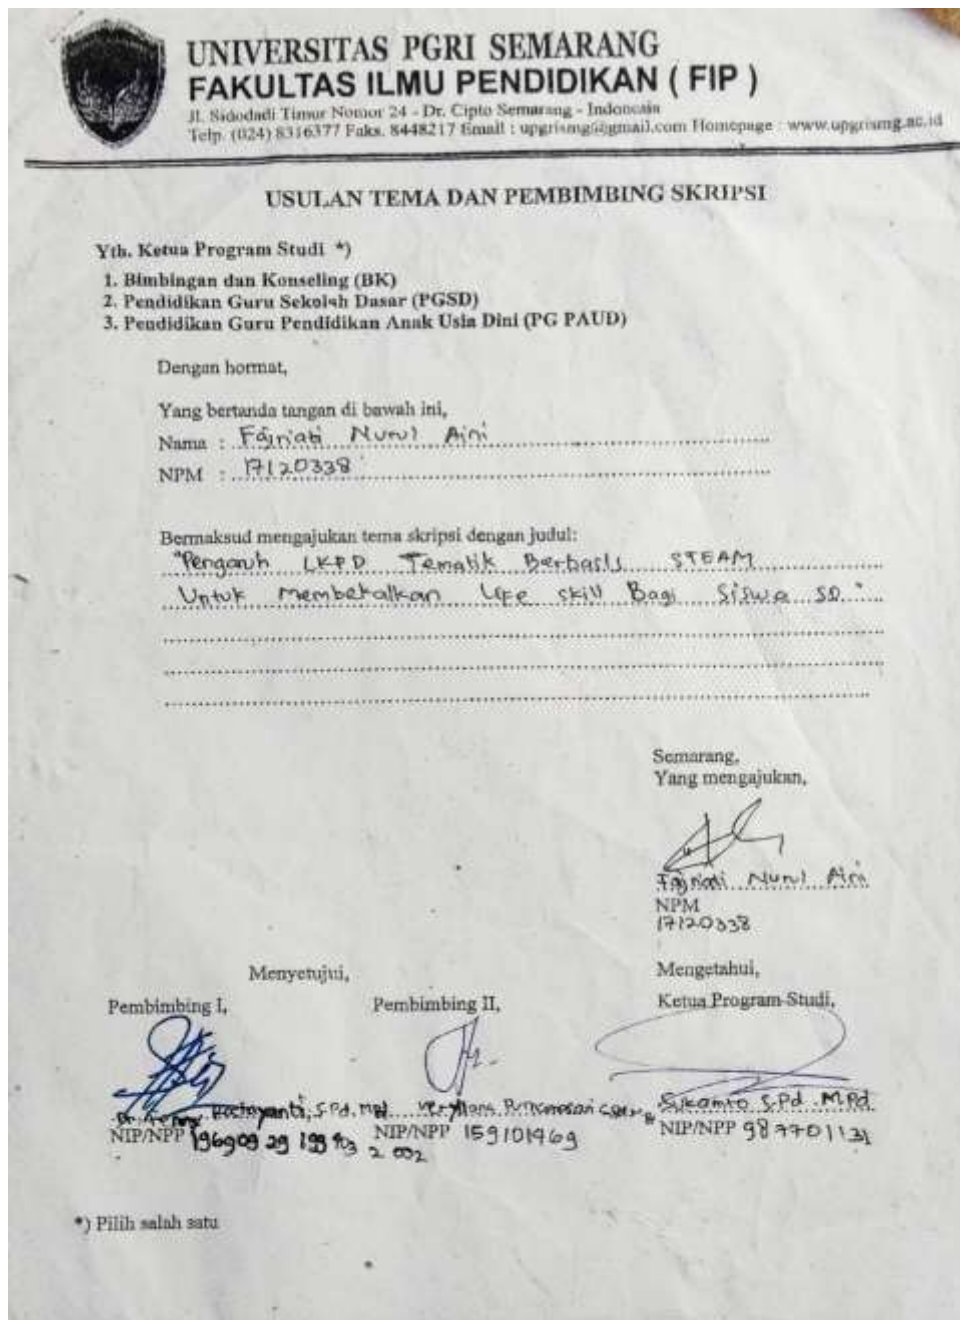 UNIVERSITAS PGRI SEMARANG
FAKULTAS ILMU PENDIDIKAN ( FIP )
Jl. Sidodadi Timur Nomor 24 - Dr. Cipto Semarang - Indonesia
Telp. (024) 8316377 Faks. 8448217 Email : upgrismg@gmail.com Homepage : www.upgrismg.ac.id
USULAN TEMA DAN PEMBIMBING SKRIPSI
Yth. Ketua Program Studi *)
1. Bimbingan dan Konseling (BK)
2. Pendidikan Guru Sekolah Dasar (PGSD)
3. Pendidikan Guru Pendidikan Anak Usia Dini (PG PAUD)
Dengan hormat,
Yang bertanda tangan di bawah ini,
Nama : Fajriati Nurul Aini
NPM : 17120338
Bermaksud mengajukan tema skripsi dengan judul:
"Pengaruh LKPD Tematik Berbasis STEAM
Untuk Membekalkan Life skill Bagi Siswa SD."
Semarang,
Yang mengajukan,
Fajriati Nurul Aini
NPM
17120338
Menyetujui, Mengetahui,
Pembimbing I, Pembimbing II, Ketua Program Studi,
Dr. S.Pd, MPd Sukamto S.Pd .M.Pd
NIP/NPP 19690929 199403 2 002 NIP/NPP 159101969 NIP/NPP 987701131
*) Pilih salah satu